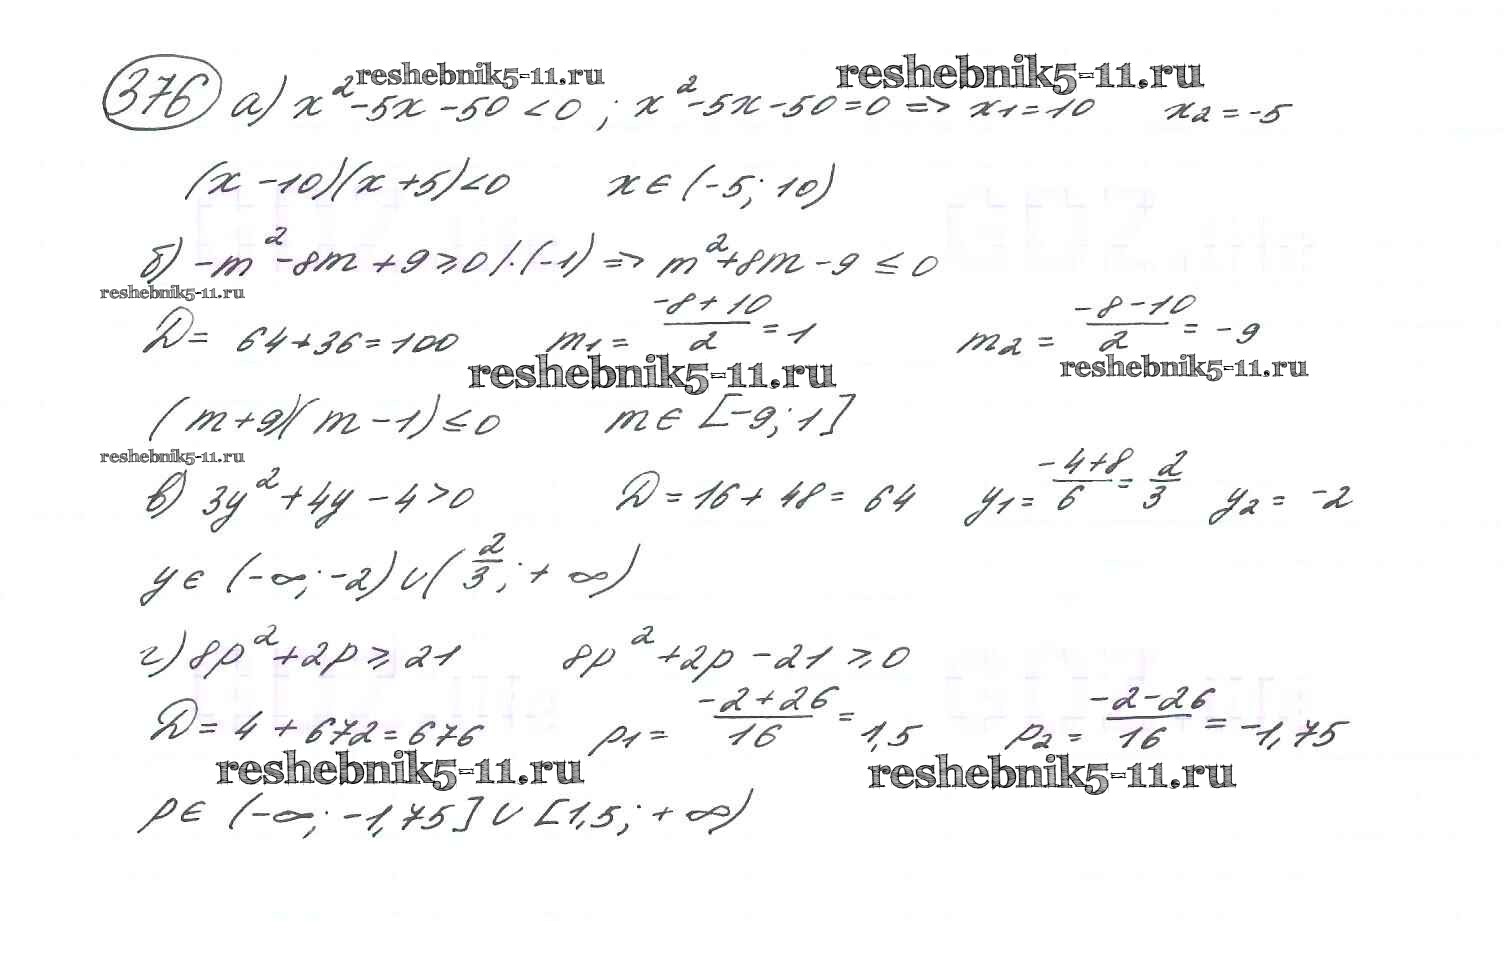 reshebnik5-11.ru reshebnik5-11.ru
376 а) x²-5x-50<0; x²-5x-50=0 => x1=10 x2=-5
(x-10)(x+5)<0 x∈(-5; 10)
б) -m²-8m+9≥0 /·(-1) => m²+8m-9≤0
reshebnik5-11.ru
D= 64+36=100 m1= (-8+10)/2 =1 m2= (-8-10)/2 = -9
reshebnik5-11.ru reshebnik5-11.ru
(m+9)(m-1)≤0 m∈[-9; 1]
reshebnik5-11.ru
в) 3y²+4y-4>0 D=16+48=64 y1= (-4+8)/6 = 2/3 y2= -2
y∈(-∞; -2)∪(2/3; +∞)
г) 8p²+2p≥21 8p²+2p-21≥0
D=4+672=676 p1= (-2+26)/16 = 1,5 p2= (-2-26)/16 = -1,75
reshebnik5-11.ru reshebnik5-11.ru
p∈(-∞; -1,75]∪[1,5; +∞)